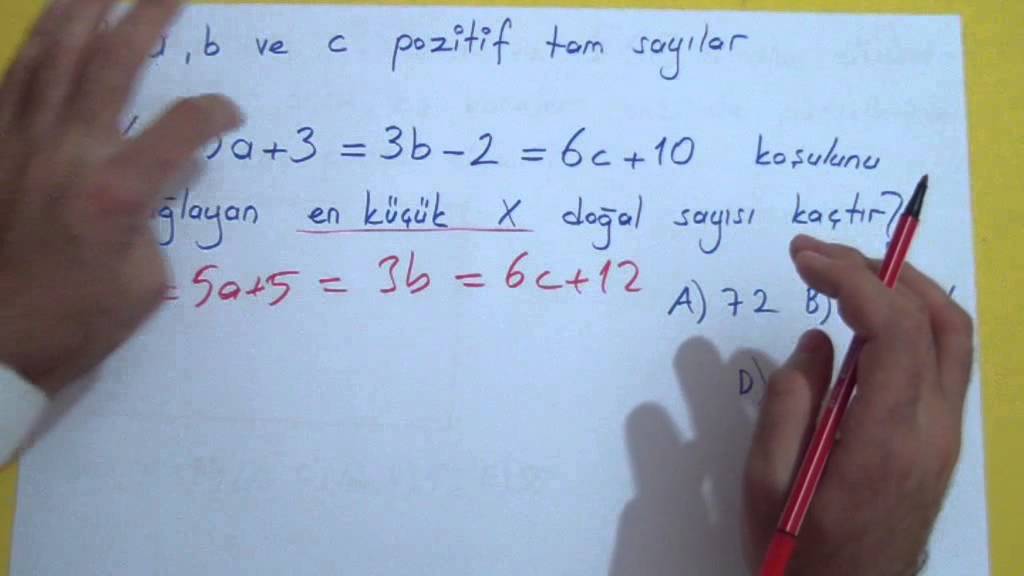 , b ve c pozitif tam sayılar
a+3 = 3b-2 = 6c+10 koşulunu
en küçük X doğal sayısı kaçtır?
= 5a+5 = 3b = 6c+12
A) 72 B)
D)